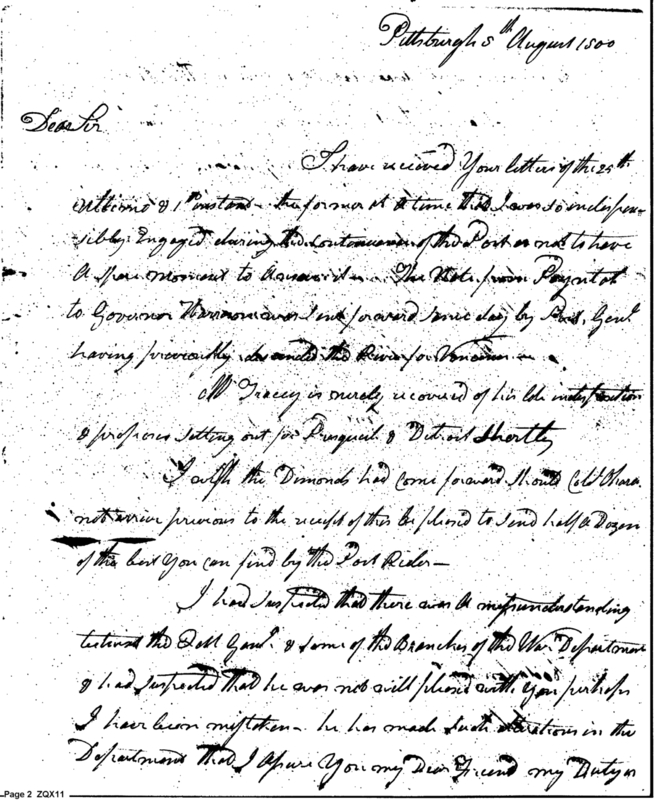 Pittsburgh 8th August 1800
Dear Sir
I have received Your letters of the 25th
ultimo & 1st instant - the former at a time that I was so indispen-
sibly Engaged during the continuance of the Post as not to have
A spare moment to Answer it - The Note from Paynt of
to Governor Harrison was sent forward same day by Post, Genl
having previously descended the River for
Mr Tracey is nearly recovered of his late indisposition
& proposes setting out for Presquile & Detroit Shortly
I wish the Dimonds had come forward should Colo Ohara
not arrive previous to the receipt of this be pleased to send half a Dozen
of the best You can find by the Post Rider -
I had suspected that there was A misunderstanding
between the Genl & some of the Branches of the War Department
& had suspected that he was not well pleased with You perhaps
I have been mistaken - he has made such alterations in the
Department that I Assure You my Dear Friend my Duty is
Page 2 ZQX11